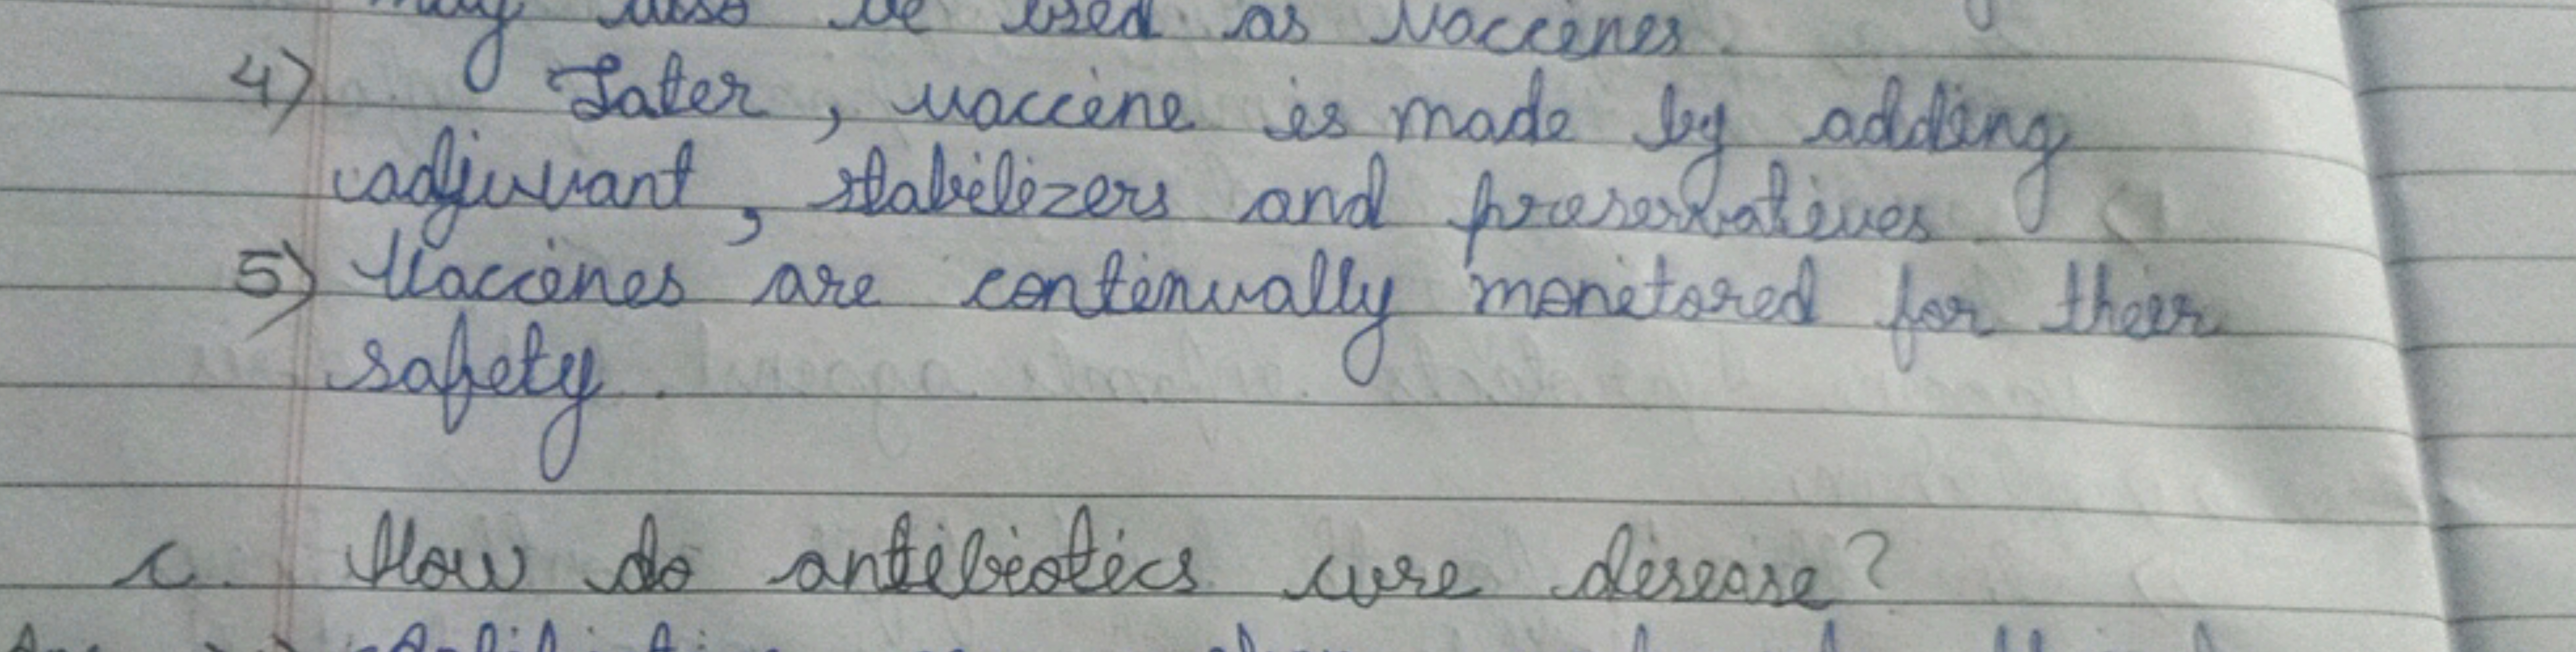 may also be used as vaccines
4) Later, vaccine is made by adding
adjuvant, stabilizers and preservatives
5) Vaccines are continually monitored for their
safety.
c. How do antibiotics cure disease?